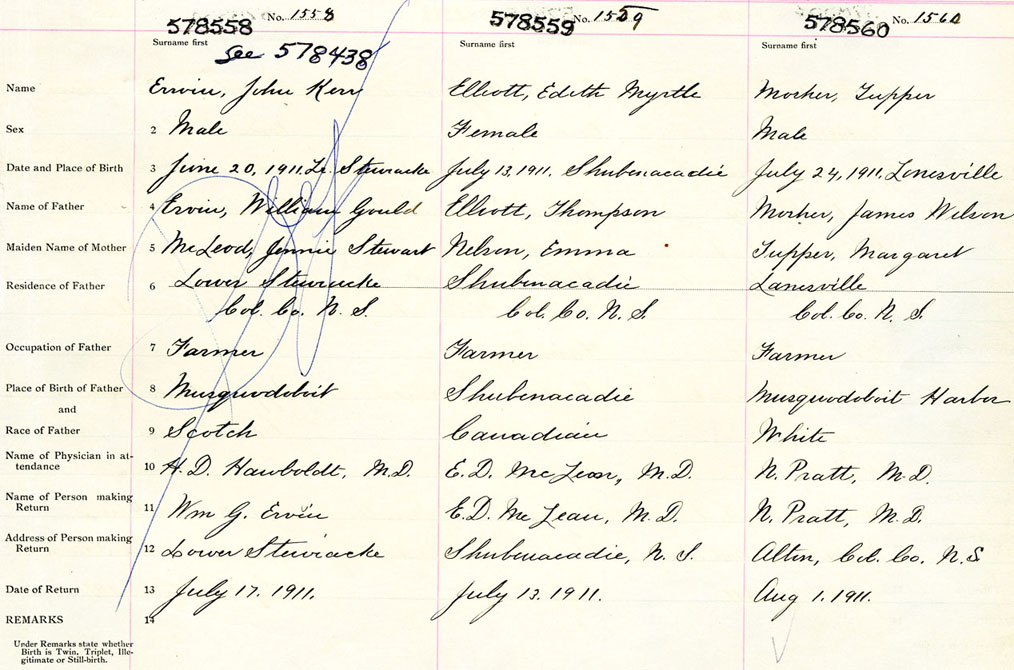 578558 No. 1558 578559 No. 1559 578560 No. 1560
Surname first Surname first Surname first
see 578438
Name Ervin, John Kerr Elliott, Edith Myrtle Mosher, Tupper
Sex 2 Male Female Male
Date and Place of Birth 3 June 20, 1911. Lr. Stewiacke July 13, 1911. Shubenacadie July 24, 1911. Lanesville
Name of Father 4 Ervin, William Gould Elliott, Thompson Mosher, James Wilson
Maiden Name of Mother 5 McLeod, Jennie Stewart Nelson, Emma Tupper, Margaret
Residence of Father 6 Lower Stewiacke Shubenacadie Lanesville
Col. Co. N. S. Col. Co. N. S. Col. Co. N. S.
Occupation of Father 7 Farmer Farmer Farmer
Place of Birth of Father 8 Musquodoboit Shubenacadie Musquodoboit Harbor
and
Race of Father 9 Scotch Canadian White
Name of Physician in at-
tendance 10 H. D. Hawboldt, M.D. E. D. McLean, M.D. N. Pratt, M.D.
Name of Person making
Return 11 Wm G. Ervin E. D. McLean, M.D. N. Pratt, M.D.
Address of Person making
Return 12 Lower Stewiacke Shubenacadie, N. S. Alton, Col. Co. N.S
Date of Return 13 July 17. 1911. July 13. 1911. Aug 1. 1911.
REMARKS 14
Under Remarks state whether
Birth is Twin, Triplet, Ille-
gitimate or Still-birth.